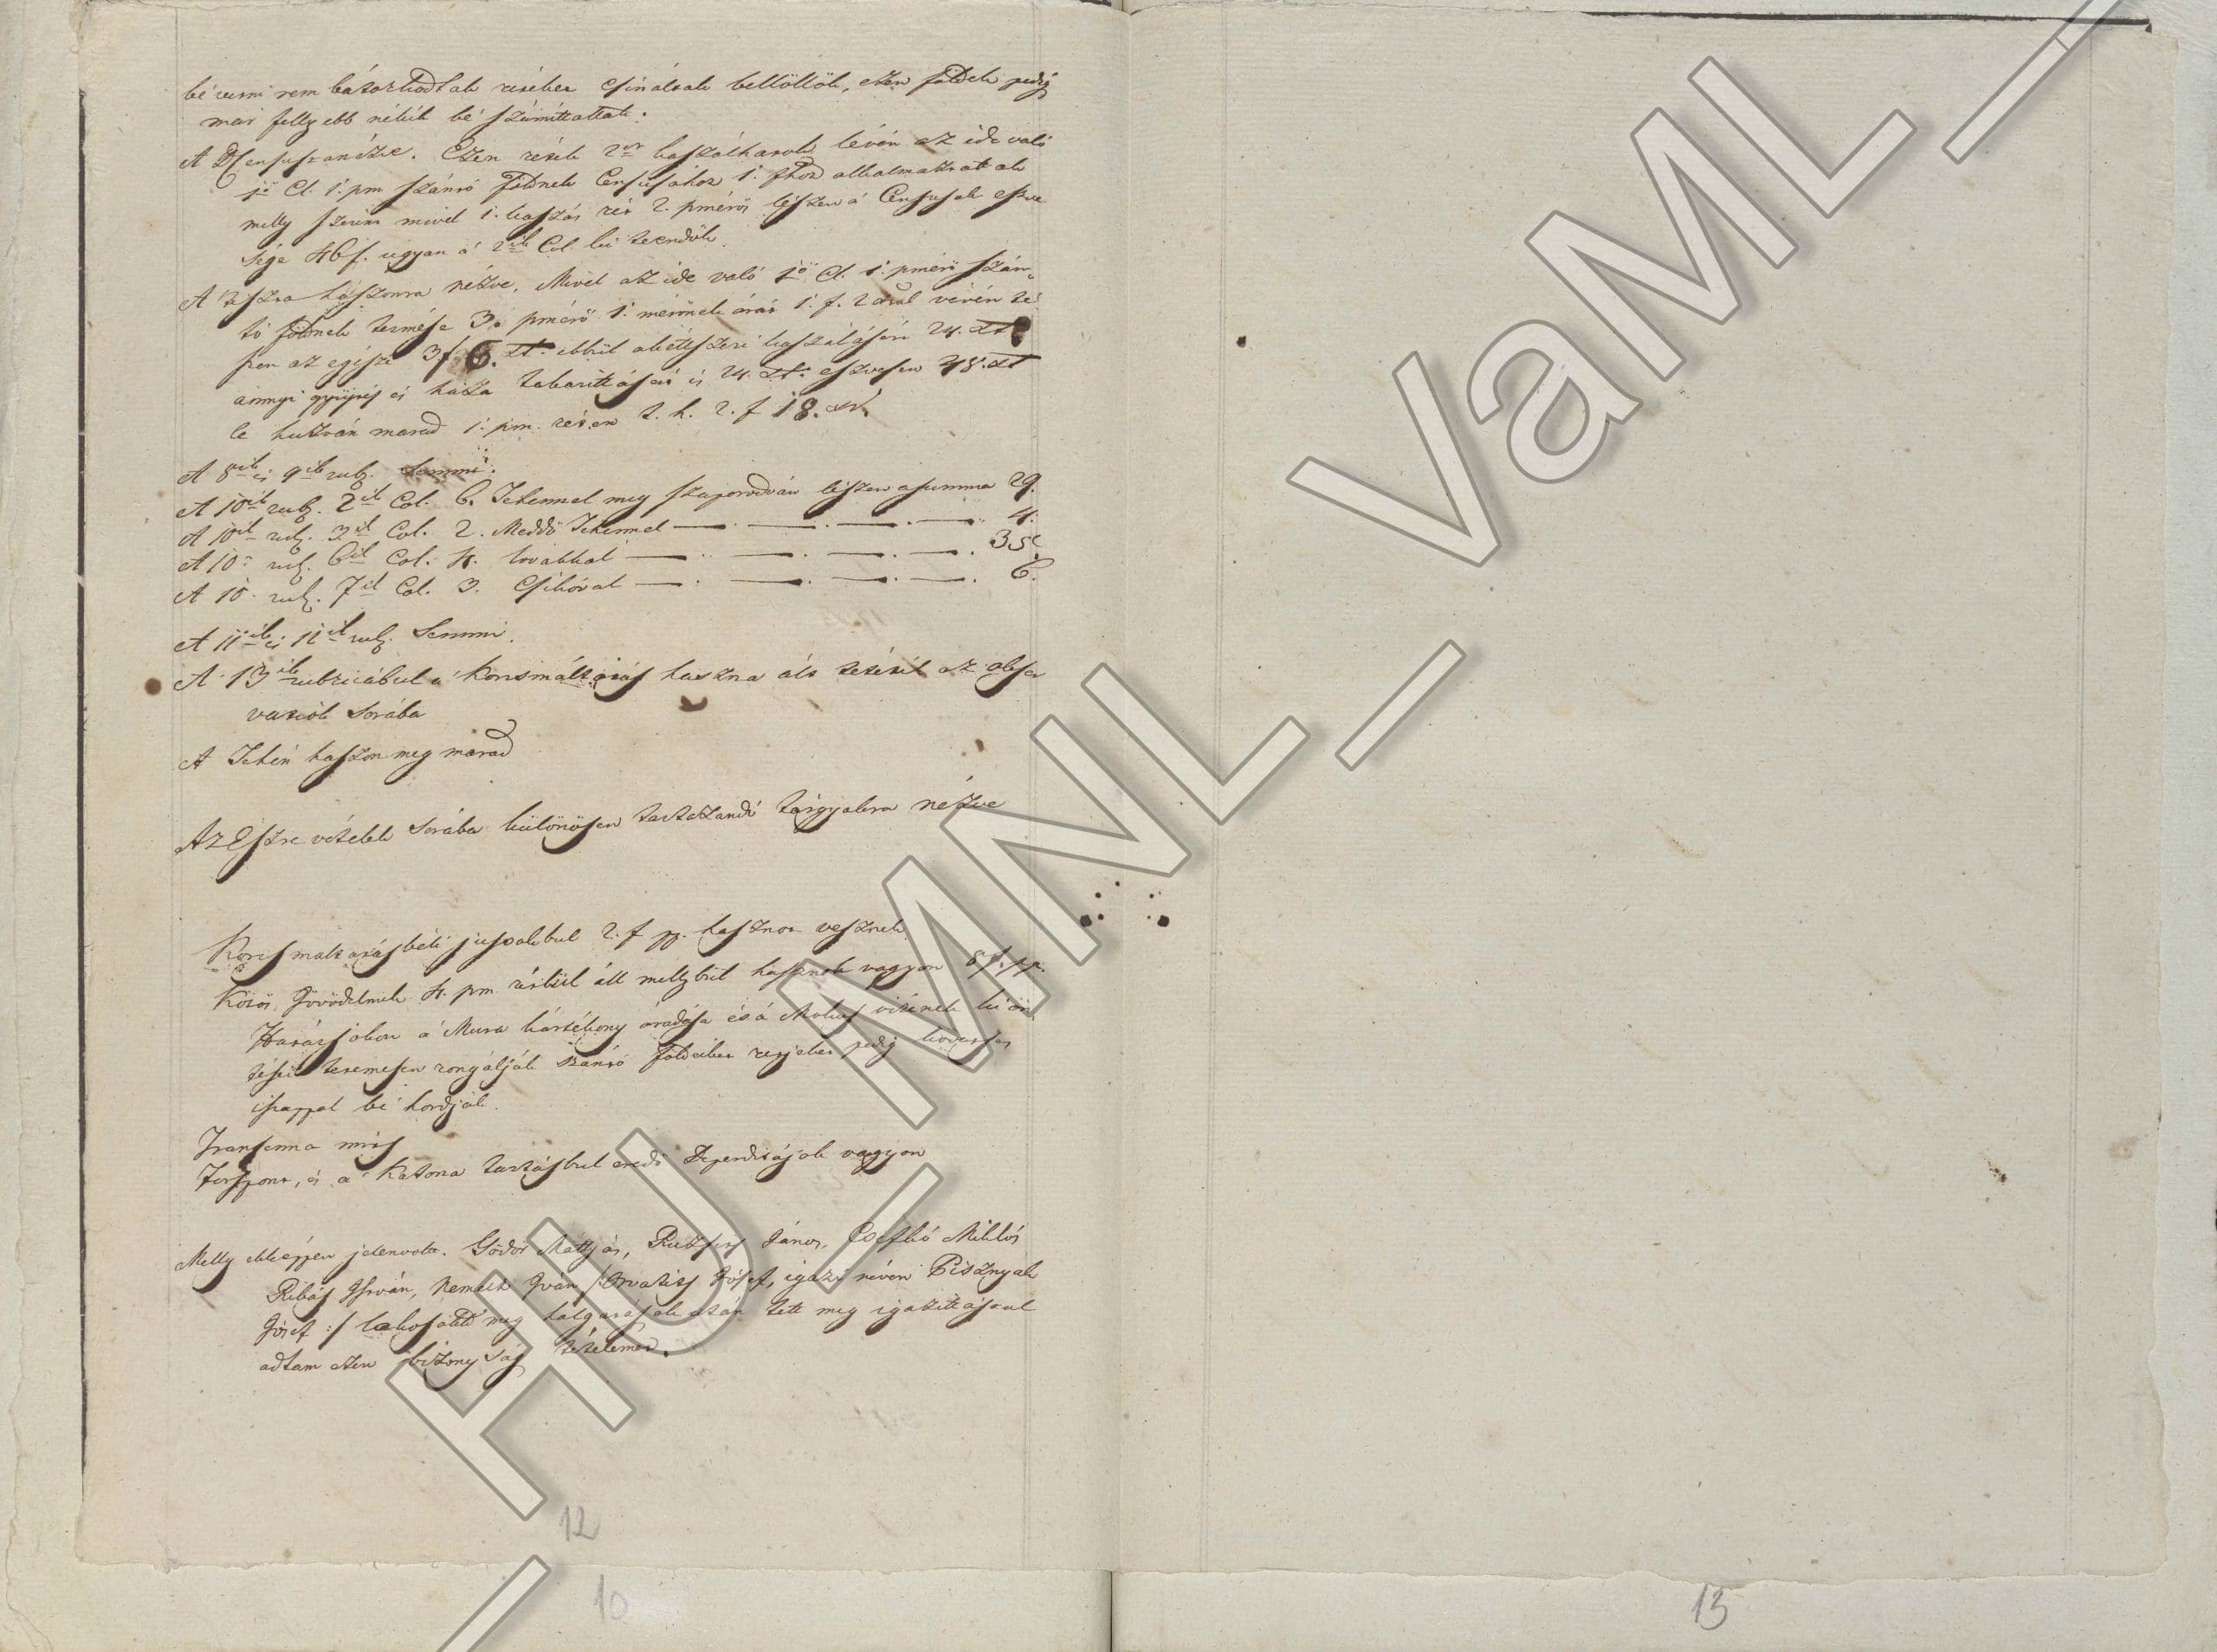 bé venni nem bátorkodtak réseket Csinálsak bellöllök, ezen földek pedig
már fellyebb nélük bé számittattak.
A Censusra nézve. Ezen rések 2er kaszálhatok lévén az ide való
1ő Cl. 1. pm szántó földnek Censusához 1. fhoz alkalmaztattak
melly szerint mivel 1. kaszás rét 2. pmérős lészen á Censusok eszve
sége 46f. ugyan á 2ik Col. ki teendők.
A tiszta haszonra nézve. Mivel az ide való 1ő Cl. 1. pmérő szán-
tó földnek termése 3. pmérő 1. mérőnek árát 1. f. 2 xrul vévén té-
szen az egésze 3f 6. xt. ebbül a kéttszeri kaszálásért 24. xt
annyi gyüjtés és haza takarittásért is 24. xt. eszvesen 48. xt
le huzván marad 1. pm. réten t. h. 2. f 18. xr.
A 8ik és 9ik rub. Semmi.
A 10ik rub. 2ik Col. 6. Tehennel meg szaporodván lészen a summa 29.
A 10ik rub. 3ik Col. 2. Meddő Tehennel — . — . — . — . 4.
A 10. rub. 6ik Col. 4. lovakkal — . — . — . — . 35.
A 10. rub. 7ik Col. 3. Csikóval — . — . — . — . 6.
A 11ik és 12ik rub. Semmi.
A 13ik rubricábul a Korcsmáltatás haszna által tétetik az obser
vatiók Sorába
A Tehén haszon meg marad
Az Észre vételek Sorába különössen tartozandó tárgyakra nézve
Korcsmaltatásbéli jussokbul 2. f pp. hasznot vesznek
Közös Jövödelmek 4. pm. rétbül áll mellybül hasznok vagyon 8f. pp.
Határjokon á Mura kártékony áradása és á Mokus vizének ki ön
tései teremessen rongálják szántó földeiket resjeket pedig kövecses
iszappal bé hordják.
Transenna nints
Forspont, és a Katona tartásbul eredő Deperditájok vagyon
Melly ekképpen jelenvolt. Gödör Mattjás, Ritsery János, Csefkó Miklós
Ribás István, Nemeth Iván /: Orvatits Jósef, igazi néven Pisznyak
Jósef :/ lakosoktól meg halgatások után tett meg igazittásrul
adtam ezen bizonyság tételemet.
12
10
13
HU_MNL_VaML_